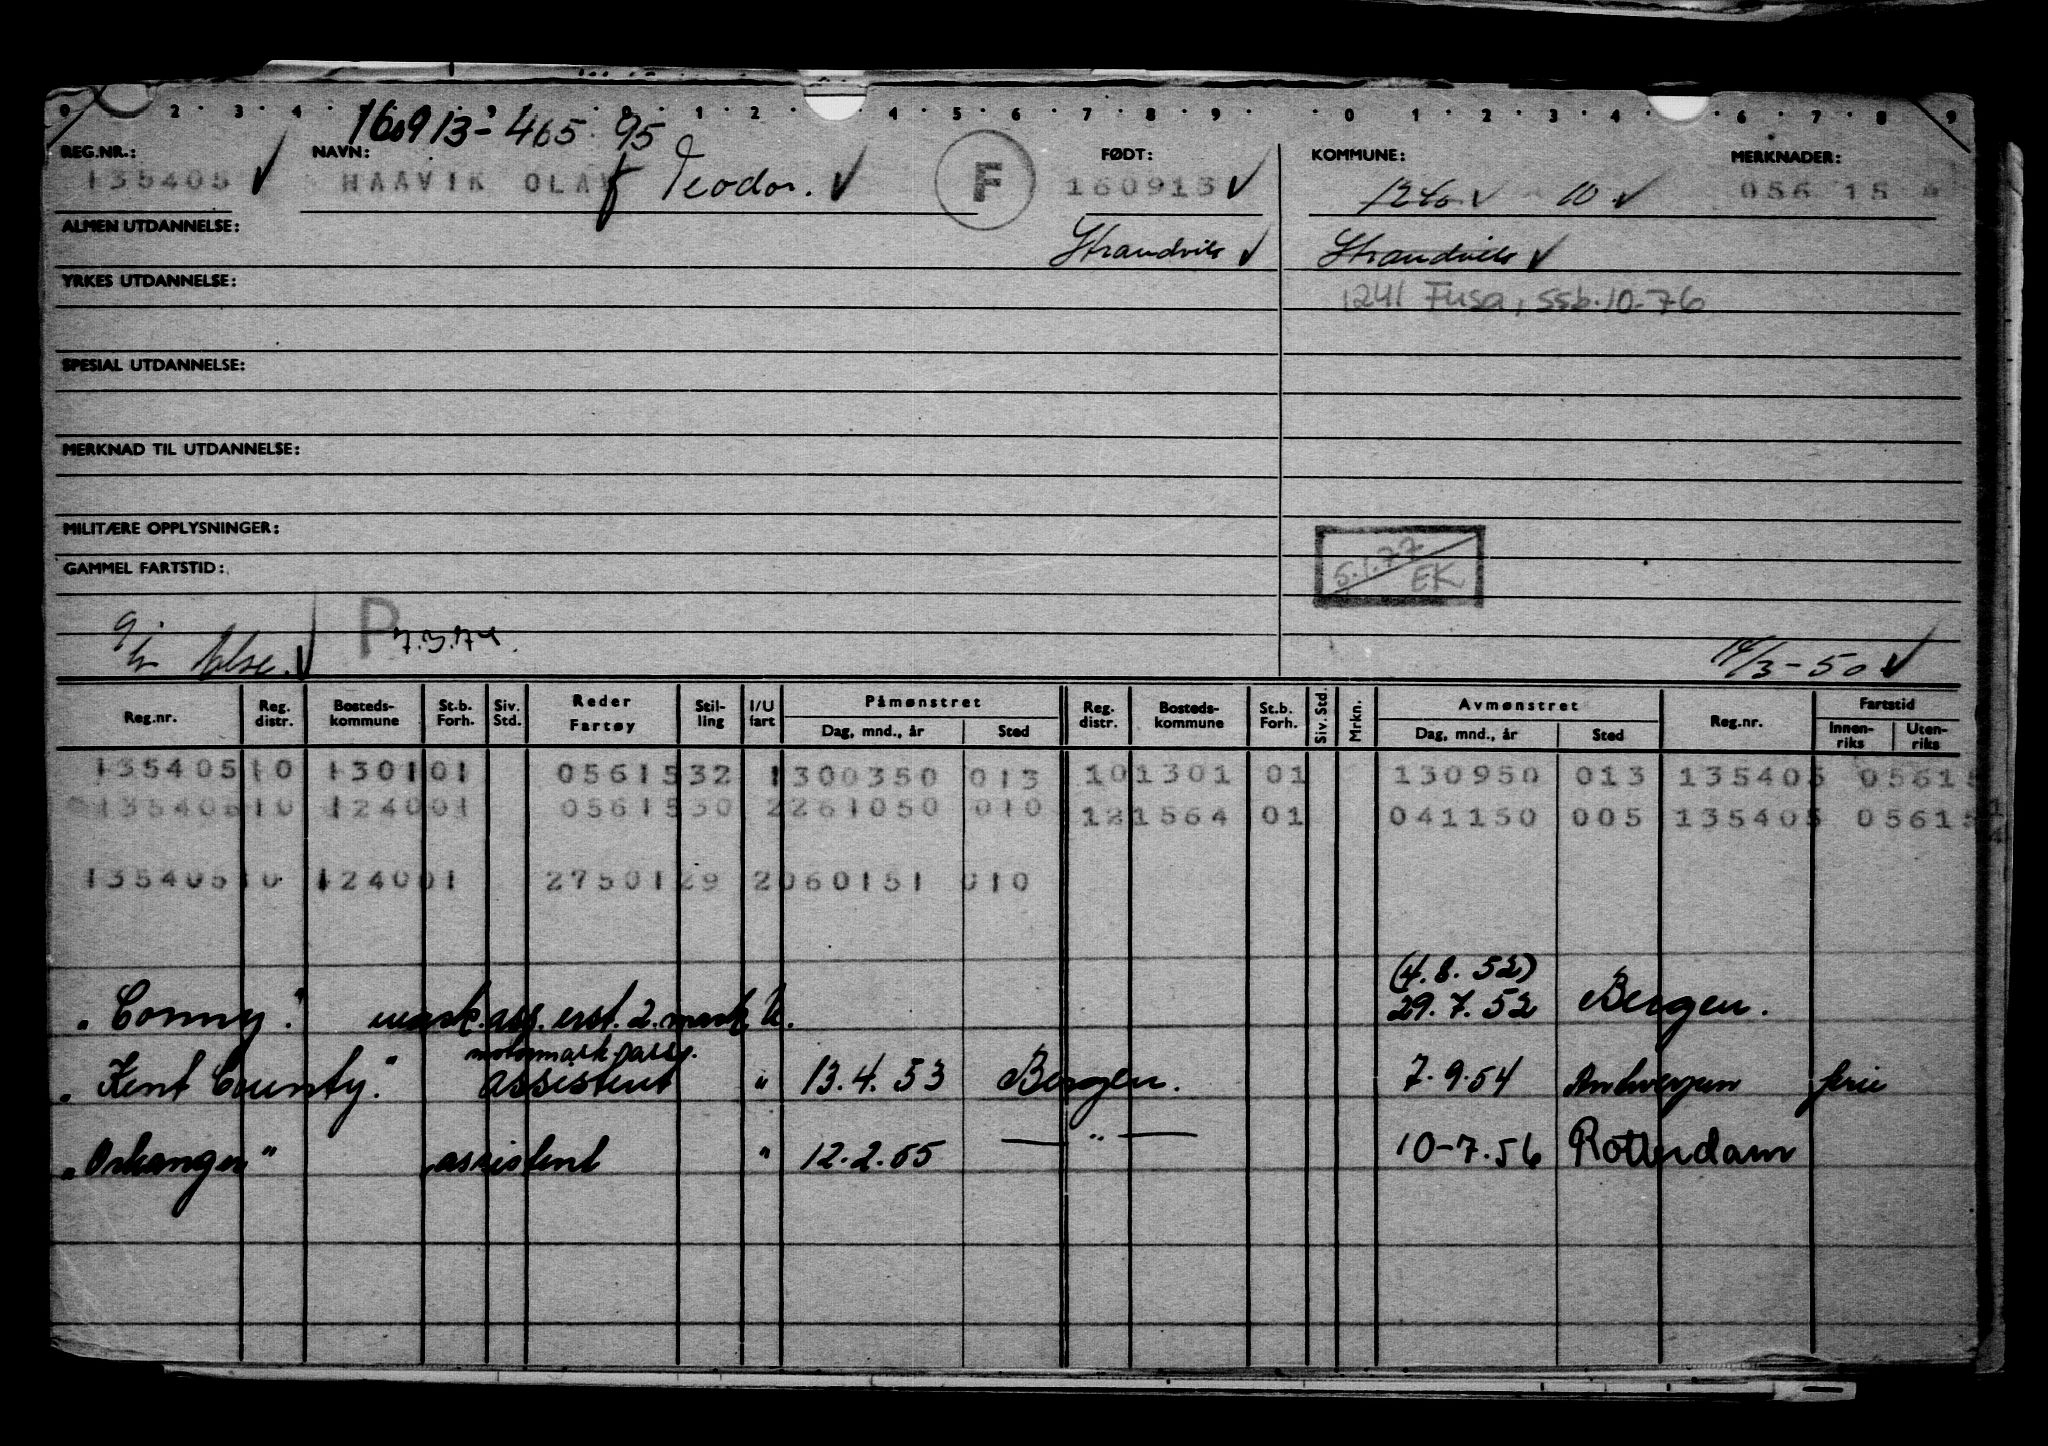 160913-465 95
REG.NR.: NAVN: FØDT: KOMMUNE: MERKNADER:
135405 HAAVIK OLAF Teodor. F 160913 1240 10 056 15
ALMEN UTDANNELSE: Strandvik Strandvik
YRKES UTDANNELSE: 1241 Fusa, ssb.10-76
SPESIAL UTDANNELSE:
MERKNAD TIL UTDANNELSE:
MILITÆRE OPPLYSNINGER:
5.1.77
GAMMEL FARTSTID: EK
P 7.3.74. 14/3-50
Reg.nr. Reg. distr. Bosteds-kommune St.b. Forh. Siv. Std. Reder Fartøy Stil-ling I/U fart Påmønstret Dag, mnd., år Sted Reg. distr. Bosteds-kommune St.b. Forh. Siv. Std. Mrkn. Avmønstret Dag, mnd., år Sted Reg.nr. Fartstid Innen-riks Uten-riks
135405 10 1301 01 05615 32 1 300350 013 10 1301 01 130950 013 135405 05615
135405 10 1240 01 05615 30 2 261050 010 12 1564 01 041150 005 135405 05615
135405 10 1240 01 27501 29 2 060151 010
(4.8.52)
"Conny." mask.ass. erst. 2. mask U. 29.7.52 Bergen.
motormask.pass.
"Kent County." assistent " 13.4.53 Bergen. 7.9.54 Antwerpen ferie
"Orkanger" assistent " 12.2.55 — " — 10-7.56 Rotterdam